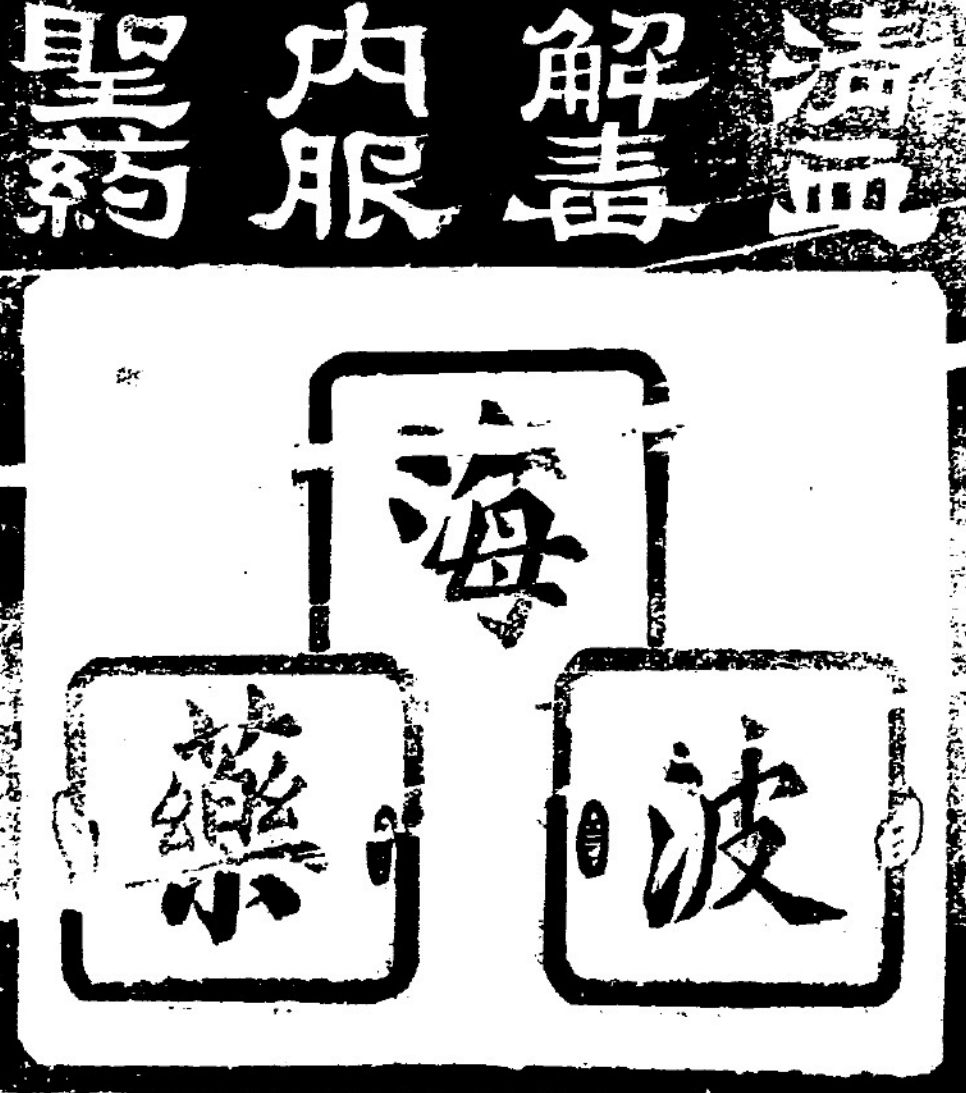 清血
解毒
內服
聖葯
海
波
藥